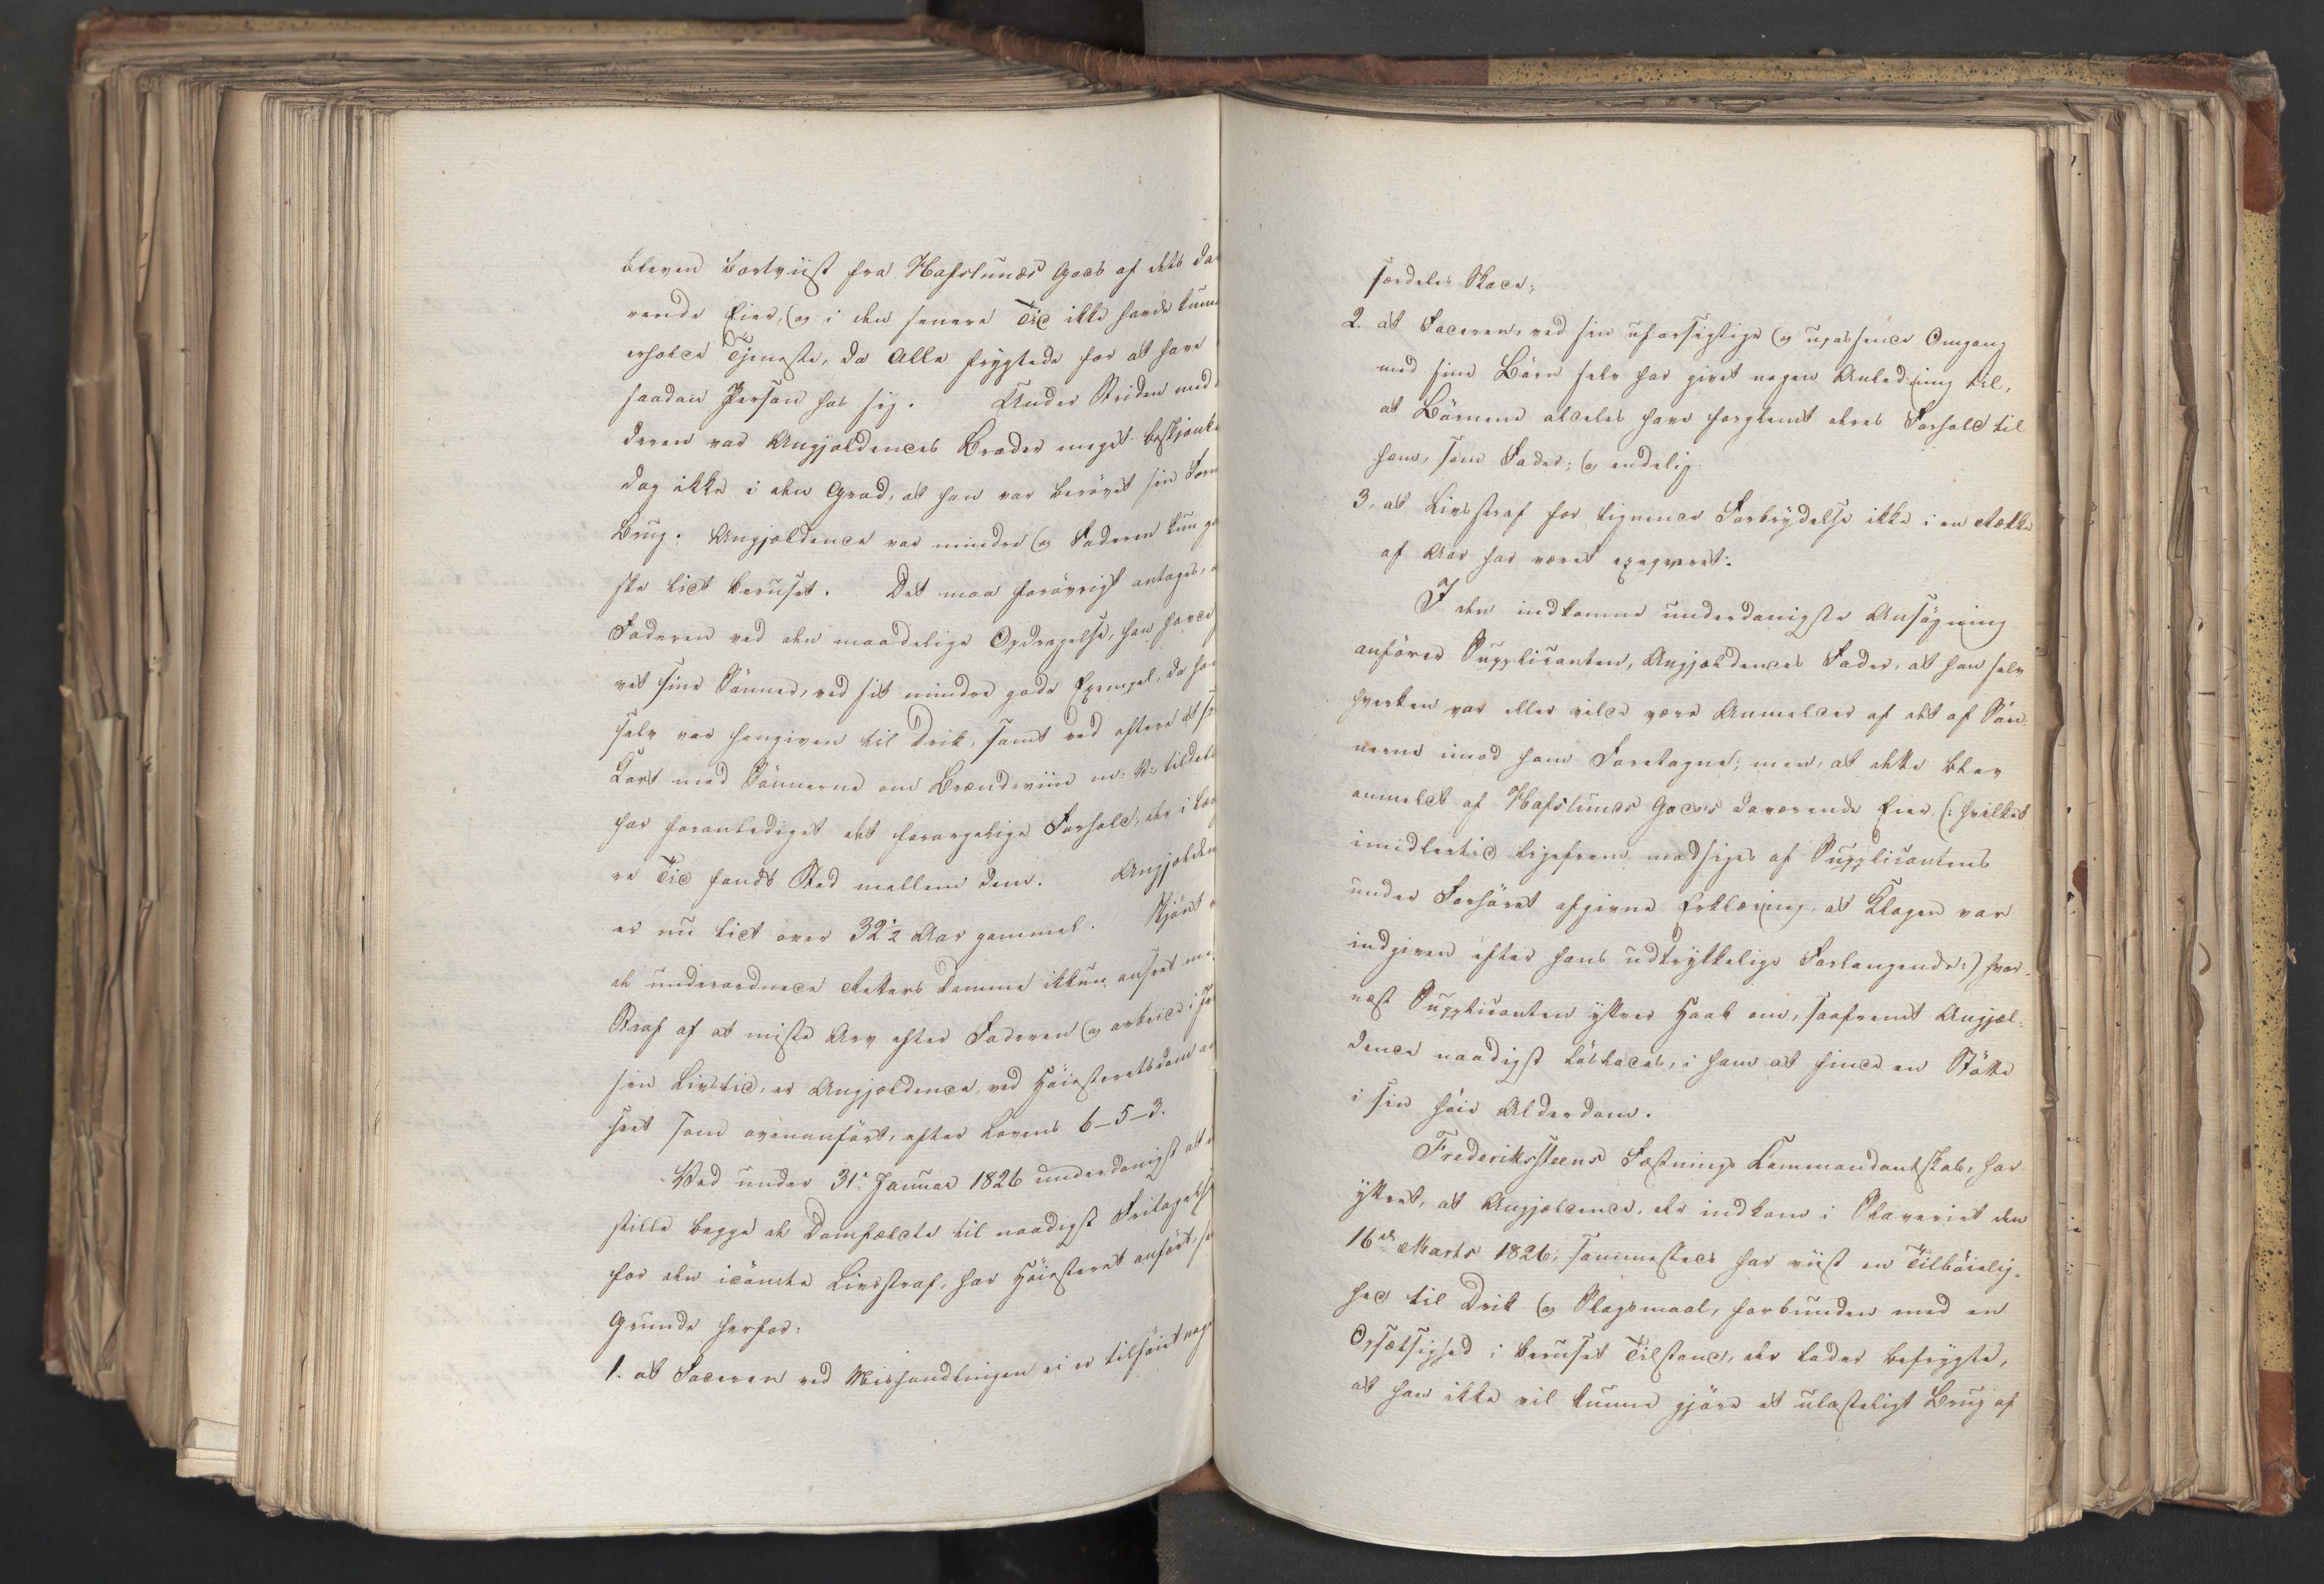 bleven bortviist fra Hafslunds Gods af dets da
rende Eier, og i den senere Tid ikke havde kun
erholde Tjeneste, da Alle frygtede for at have
saadan Person hos sig. Under Striden med
deren var Angjældendes Broder meget beskjænke
dog ikke i den Grad, at han var berøvet sin Forn
Brug. Angjældende var mindre og Faderen kun ga
ske lidt beruset. Det maa forøvrigt antages, a
Faderen ved den maadelige Opdragelse, han havde
vet sine Sønner, ved sit mindre gode Exempel, da han
selv var hengiven til Drik, samt ved oftere at sp
Kort med Sønnerne om Brændeviin m: V:, tildels
har foranlediget det forargelige Forhold, der i læn
re Tid fandt Sted mellem dem. Angjælden
er nu lidt over 32 1/2 Aar gammel. Skjønt v
de underordnede Retters Domme ikkun anseet me
Straf af at miste Arv efter Faderen og arbeide i Je
sin Livstid, er Angjældende ved Høiesteretsdom an
seet som ovenanført, efter Lovens 6-5-3.
Ved under 31te Januar 1826 underdanigst at
stille begge de Domfældte til naadigst Fritagelse
for den idømte Livsstraf, har Høiesteret anført, so
Grunde herfor:
1. at Faderen ved Mishandlingen ei er tilføiet noge
særdeles Skade;
2. at Faderen, ved sin uforsigtige og upassende Omgang
med sine Børn selv har givet nogen Anledning til,
at Børnene aldeles have forglemt deres Forhold til
ham, som Fader; og endelig
3. at Livsstraf for lignende Forbrydelse ikke i en Række
af Aar har været exeqveret.
I den indkomne underdanigste Ansøgning
anfører Supplicanten, Angjældendes Fader, at han selv
hverken var eller vilde være Anmelder af det af Søn-
nerne imod ham Foretagne; men, at dette blev
anmeldt af Hafslunds Godses daværende Eier, (: hvilket
imidlertid ligefrem modsiges af Supplicantens
under Forhøret afgivne Erklæring, at Klagen var
indgiven efter hans udtrykkelige Forlangende :) hvor-
næst Supplicanten yttrer Haab om, saafremt Angjæl-
dende naadigst løslades, i ham at finde en Støtte
i sin høie Alderdom.
Frederikssteens Fæstnings Kommandantskab, har
yttret, at Angjældende, der indkom i Slaveriet den
16de Marts 1826, sammesteds har viist en Tilbøielig-
hed til Drik og Slagsmaal, forbunden med en
Opsætsighed i beruset Tilstand, der lader befrygte,
at han ikke vil kunne gjøre et ulasteligt Brug af